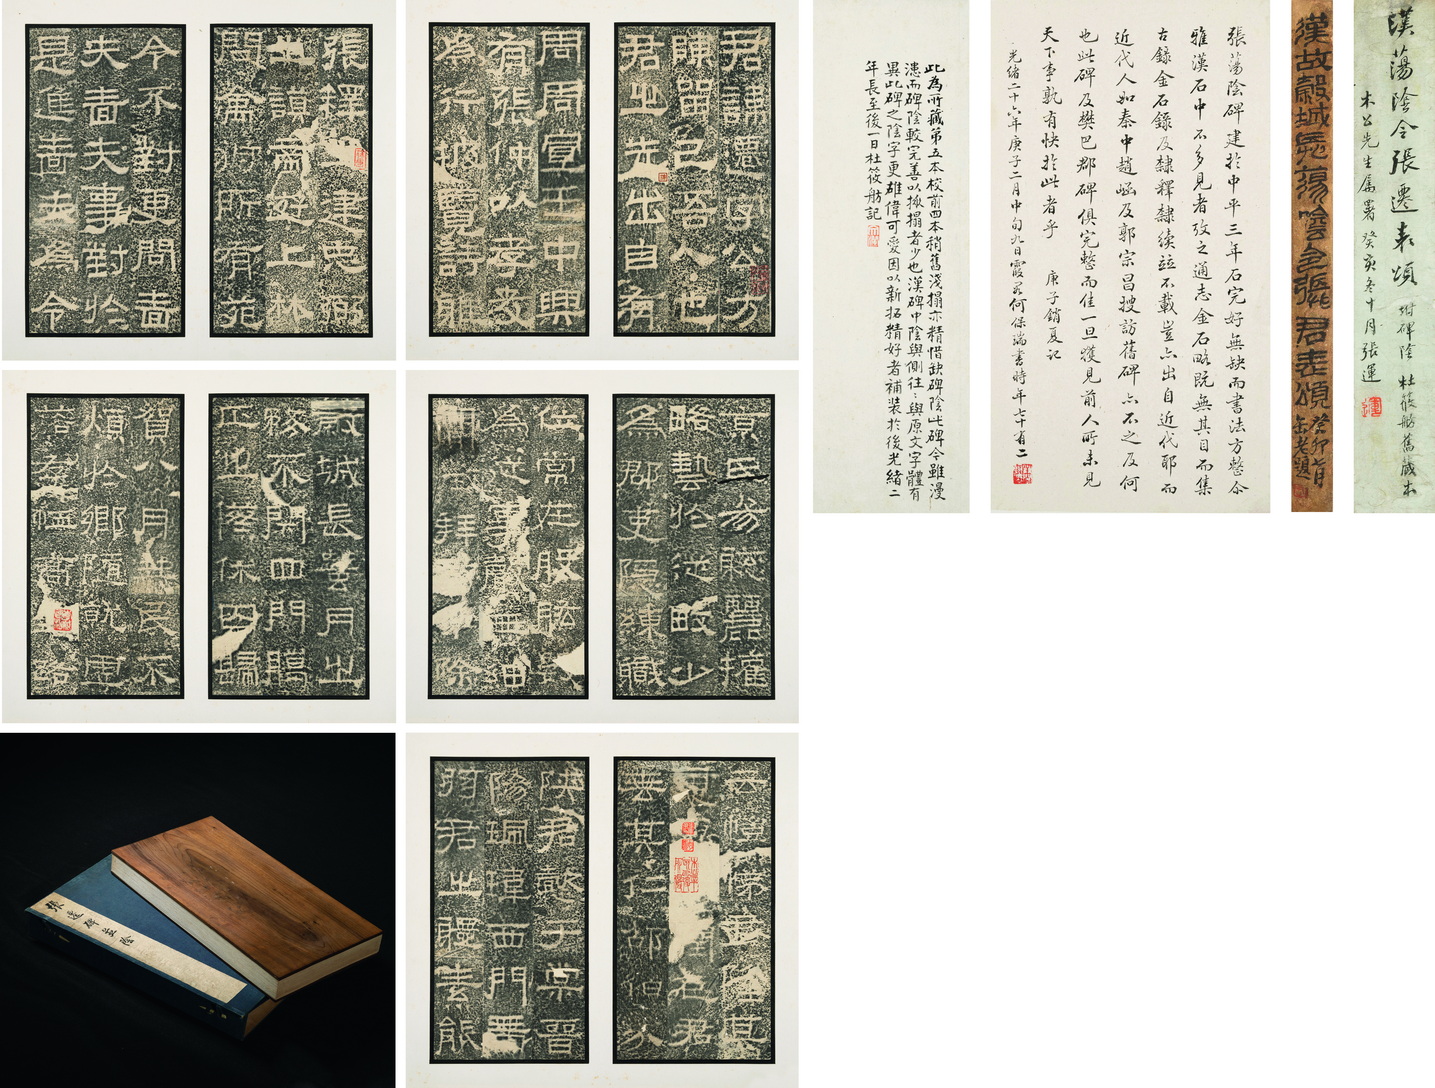 張釋之建忠弼
之謨帝遊上林
問禽狩所有苑
令不對更問嗇
夫嗇夫事對於
是進嗇夫為令
君諱遷字公方
陳留己吾人也
君之先出自有
周周宣王中興
有張仲以孝友
為行披覽詩雅
穀城長蠶月之
務不閉四門臘
正之祭休囚歸
賀八月筭民不
煩於鄉隨就虛
落存恤高路
京氏易聰麗權
略藝於從畋少
為郡吏隱練職
位常在股肱數
為從事聲無細
聞徵拜除
云愷悌君隆其
東潤色君
垂其仁邵伯分
陝君懿于棠晉
陽珮瑋西門帶
弦君之體素能
張遷碑並陰
此為所藏第五本校前四本稍舊淺搨亦精惜缺碑陰此碑今雖漫
漶而碑陰較完善以椎搨者少也漢碑中陰與側往〻與原文字體有
異此碑之陰字更雄偉可愛因以新拓精好者補裝於後光緒二
年長至後一日杜筱舫記
張蕩陰碑建於中平三年石完好無缺而書法方整尒
雅漢石中不多見者攷之通志金石略既無其目而集
古錄金石錄及隸釋隸續竝不載豈亦出自近代耶而
近代人如秦中趙崡及郭宗昌搜訪舊碑亦不之及何
也此碑及樊巴郡碑俱完整而佳一旦獲見前人所未見
天下事孰有快於此者乎 庚子銷夏記
光緒二十六年庚子二月中旬九日霞 何保瑞書時年七十有二
漢故穀城長蕩陰令張君表頌 癸卯七月
缶老題
漢蕩陰令張遷表頌 附碑陰 杜筱舫舊藏本
木公先生屬署 癸亥冬十月張運